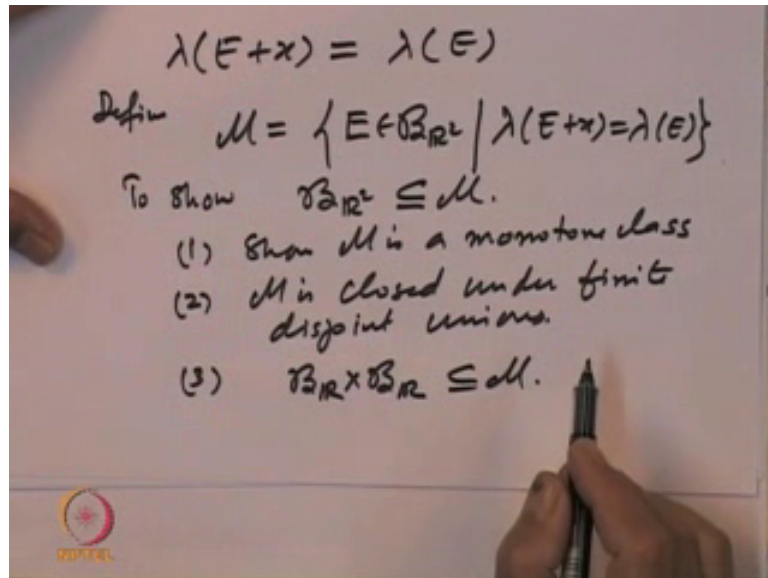 λ(E+x) = λ(E)
Define M = { E ∈ B_ℝ² | λ(E+x)=λ(E)}
To show B_ℝ² ⊆ M.
(1) Show M is a monotone class
(2) M is closed under finite
disjoint unions.
(3) B_ℝ × B_ℝ ⊆ M.
NPTEL